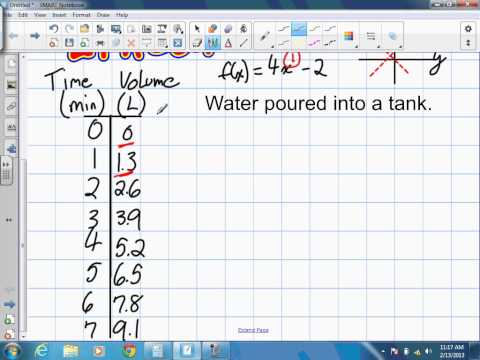 Untitled * - SMART Notebook
f(x) = 4x¹ - 2
y
Time Volume
(min) (L)
Water poured into a tank.
0 0
1 1.3
2 2.6
3 3.9
4 5.2
5 6.5
6 7.8
7 9.1
Extend Page
11:17 AM
2/13/2013